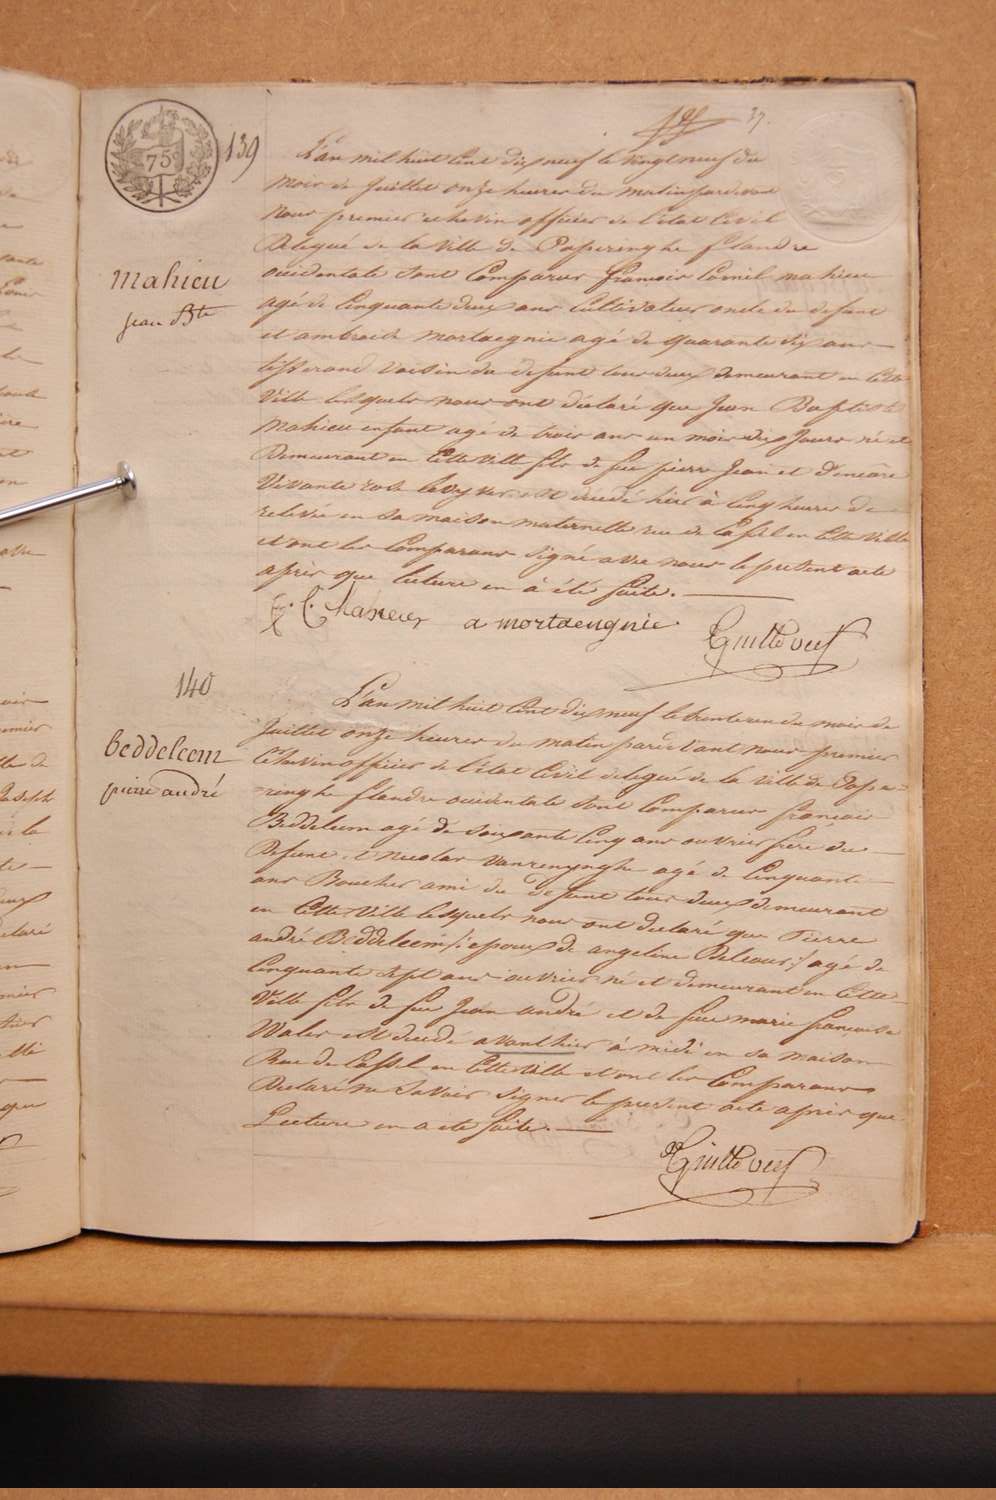 37.
75
139
L'an mil huit Cent dix neuf le vingt neuf du
mois de Juillet onze heures du matin pardevant
Nous premier echevin officier de l'état Civil
Delegué de la ville de Poperinghe flandre
occidentale sont Comparus françois Cornil mahieu
agé de Cinquante deux ans Cultivateur oncle du defunt
et ambroise mortaegnie agé de quarante dix ans
tisserand voisin du defunt tous deux demeurant en Cette
Ville lesquels nous ont déclaré que Jean Baptiste
Mahieu enfant agé de trois ans un mois dix Jours né et
Demeurant en Cette ville fils de feu pierre Jean et d'encore
Vivante est décedé hier à Cinq heures de
relevée en sa maison maternelle rue de Cassel en Cette ville
et ont les Comparans signé avec nous le present acte
après que lecture en à été faite.
Mahieu
Jean Bte
F. C. Mahieu a mortaeugnie.
140
L'an mil huit Cent dix neuf le trente un du mois de
Juillet onze heures du matin pardevant nous premier
Echevin officier de l'état Civil delegué de la Ville de Pope=
ringhe flandre occidentale sont Comparus françois
Beddeleem agé de soixante Cinq ans ouvrier frere du
Defunt et Nicolas Vanrenynghe agé de Cinquante
ans Boucher ami du defunt tous deux demeurant
en Cette Ville lesquels nous ont declaré que Pierre
andré Beddeleem /: epoux de angeline Delvour :/ agé de
Cinquante sept ans ouvrier né et demeurant en Cette
Ville fils de feu Jean andré et de feue marie françoise
Wales est decedé avant hier à midi en sa maison
Rue de Cassel en Cette Ville et ont les Comparans
Declaré ne savoir signer le present acte après que
Lecture en a été faite.
Beddeleem
pierre andré